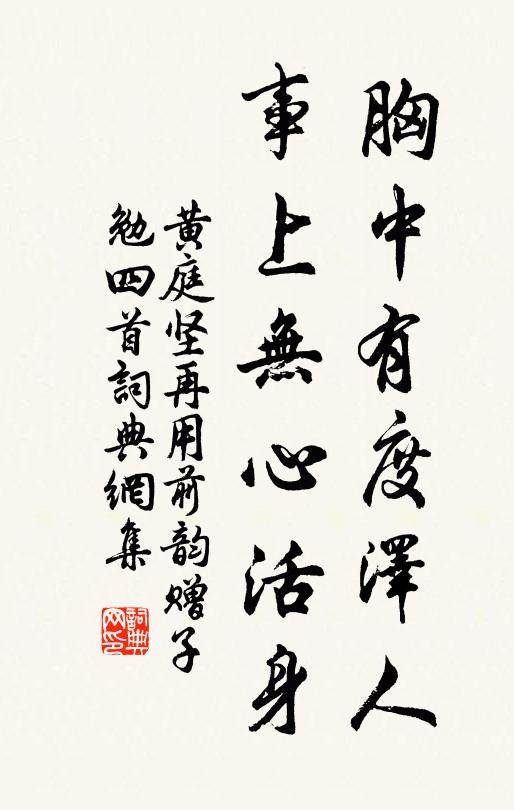 胸中有度澤人
事上無心活身
黄庭坚再用前韵赠子
勉四首詞典網集
詞典網印